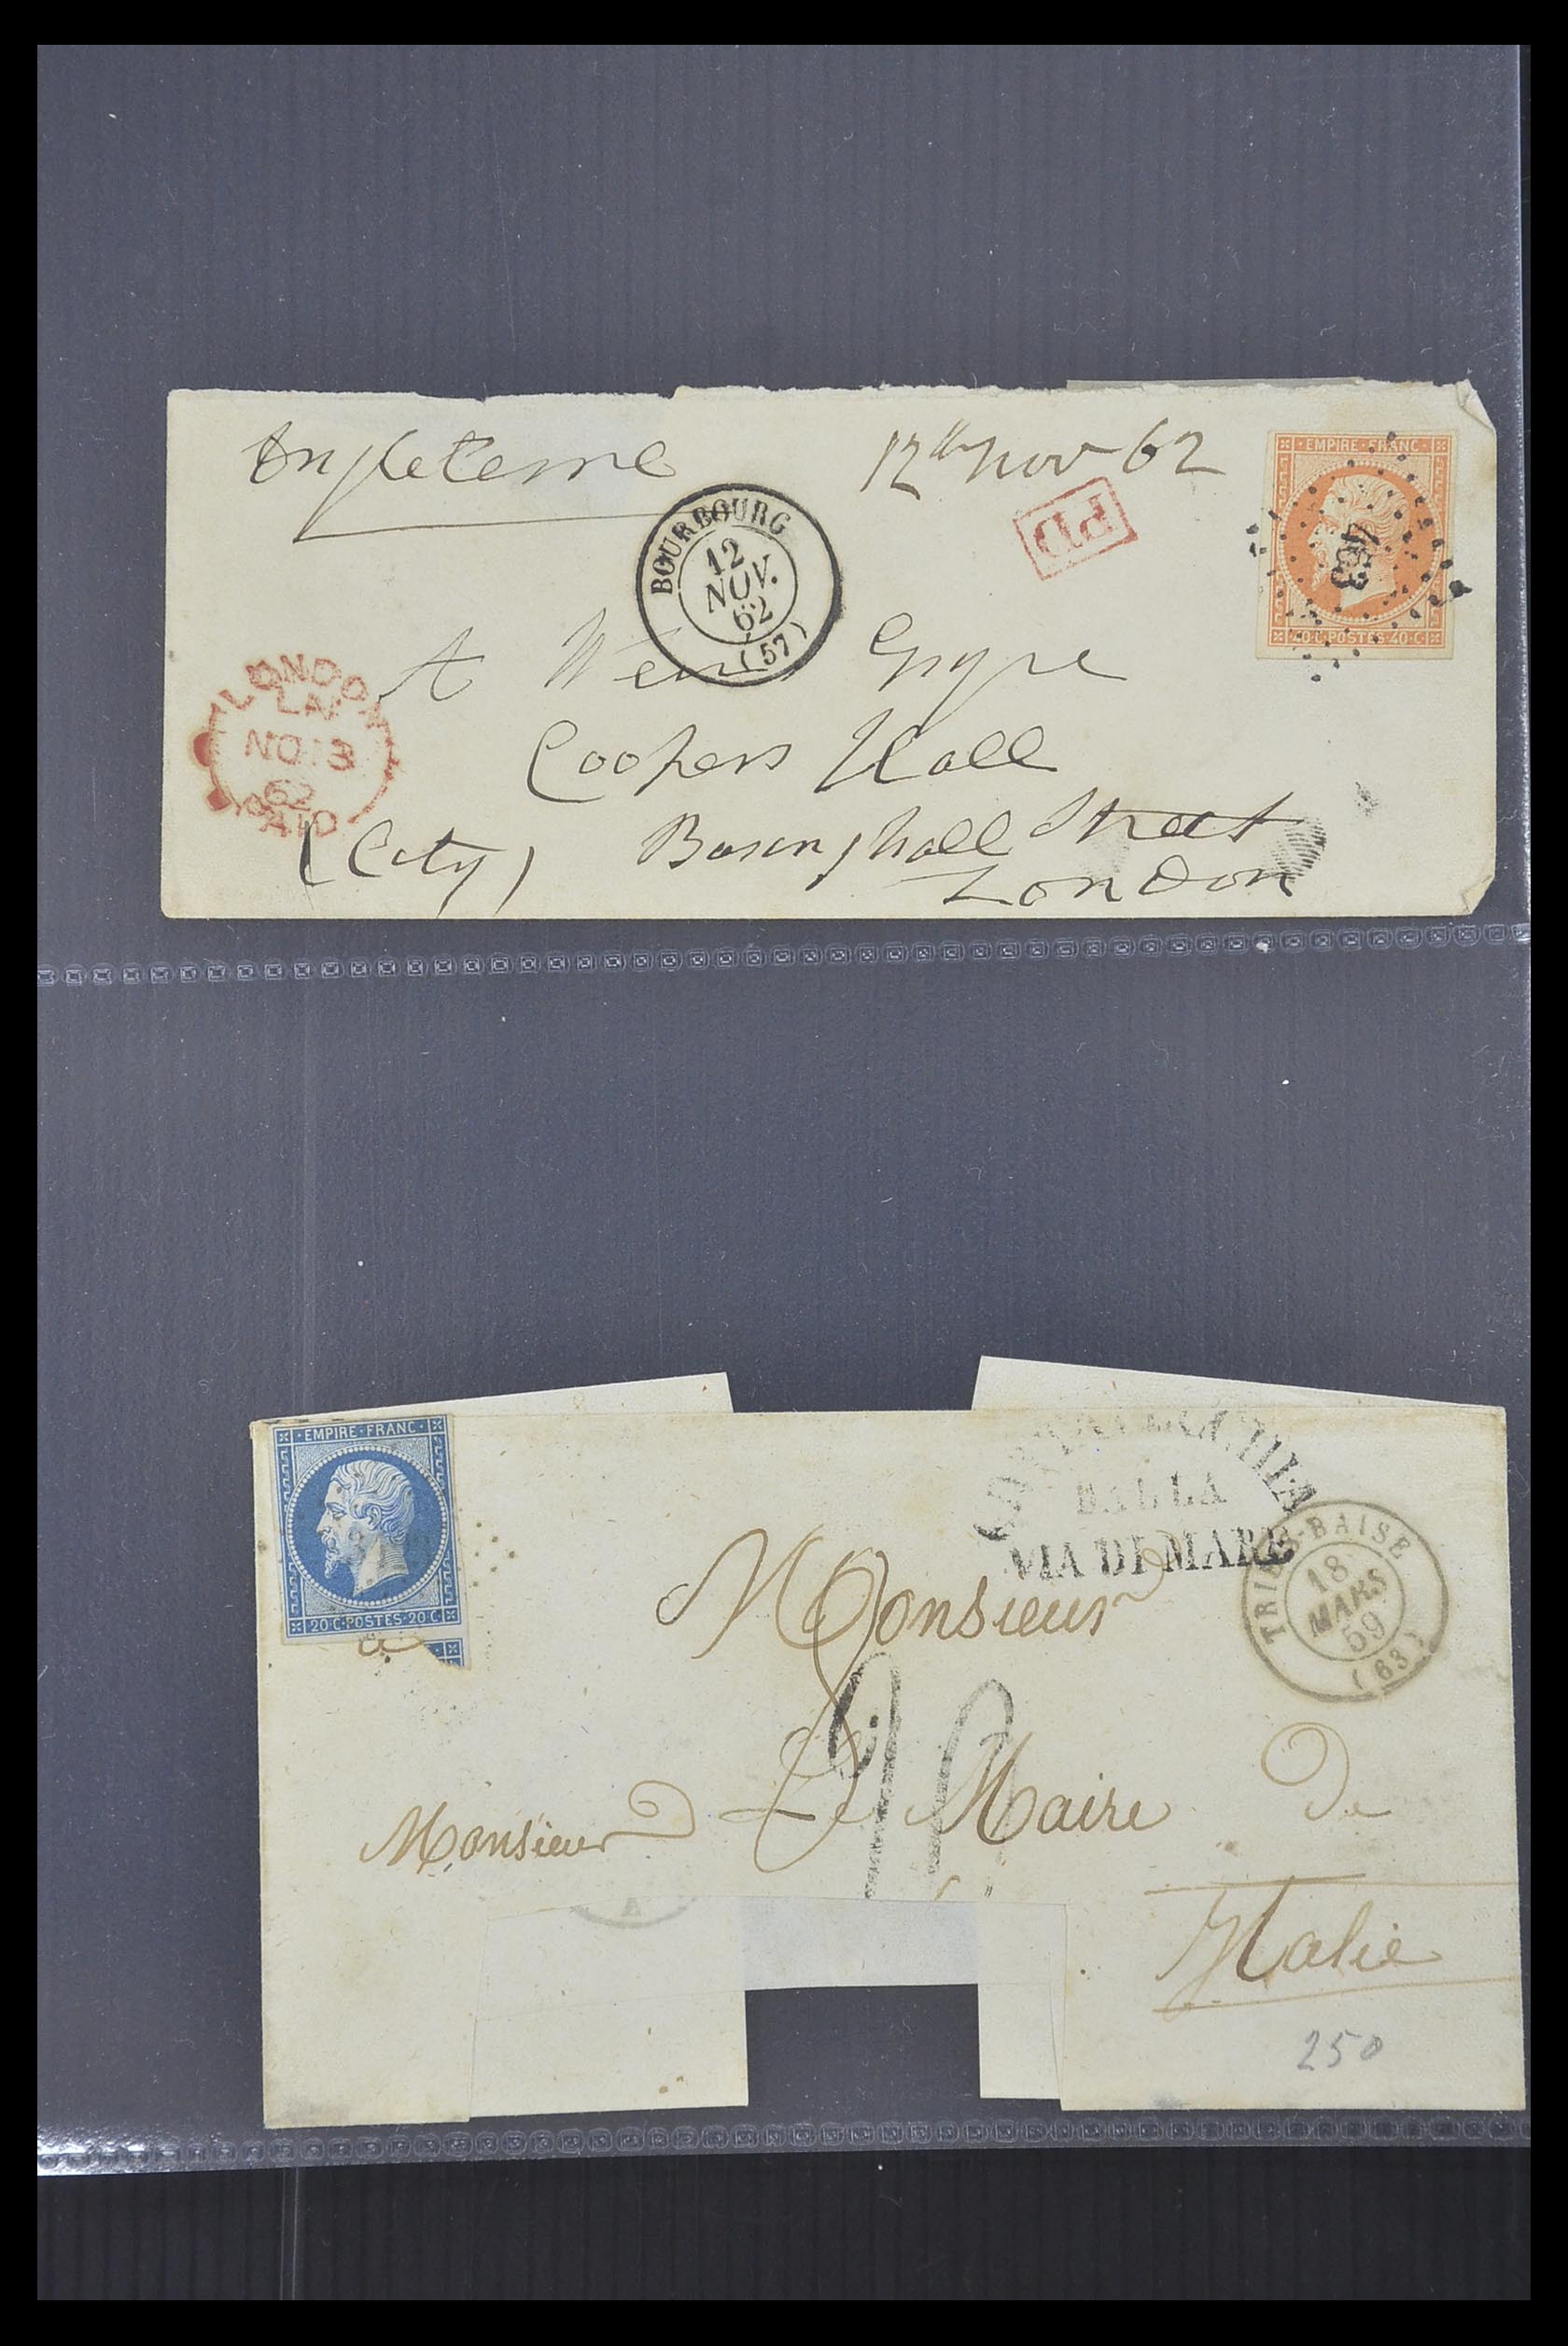 Angleterre
12th Nov 62
EMPIRE·FRANC·
BOURBOURG
12
NOV.
62
(57)
PD
463
40·C·POSTES·40·C·
LONDON
NO 13
62
PAID
A
Coopers Hall
(City) Basinghall Street
London
EMPIRE·FRANC·
20·C·POSTES·20·C·
DALLA
VIA DI MARE
TRIE-S-BAISE
18
MARS
59
(63)
Monsieur
Monsieur Le Maire de
Italie
250